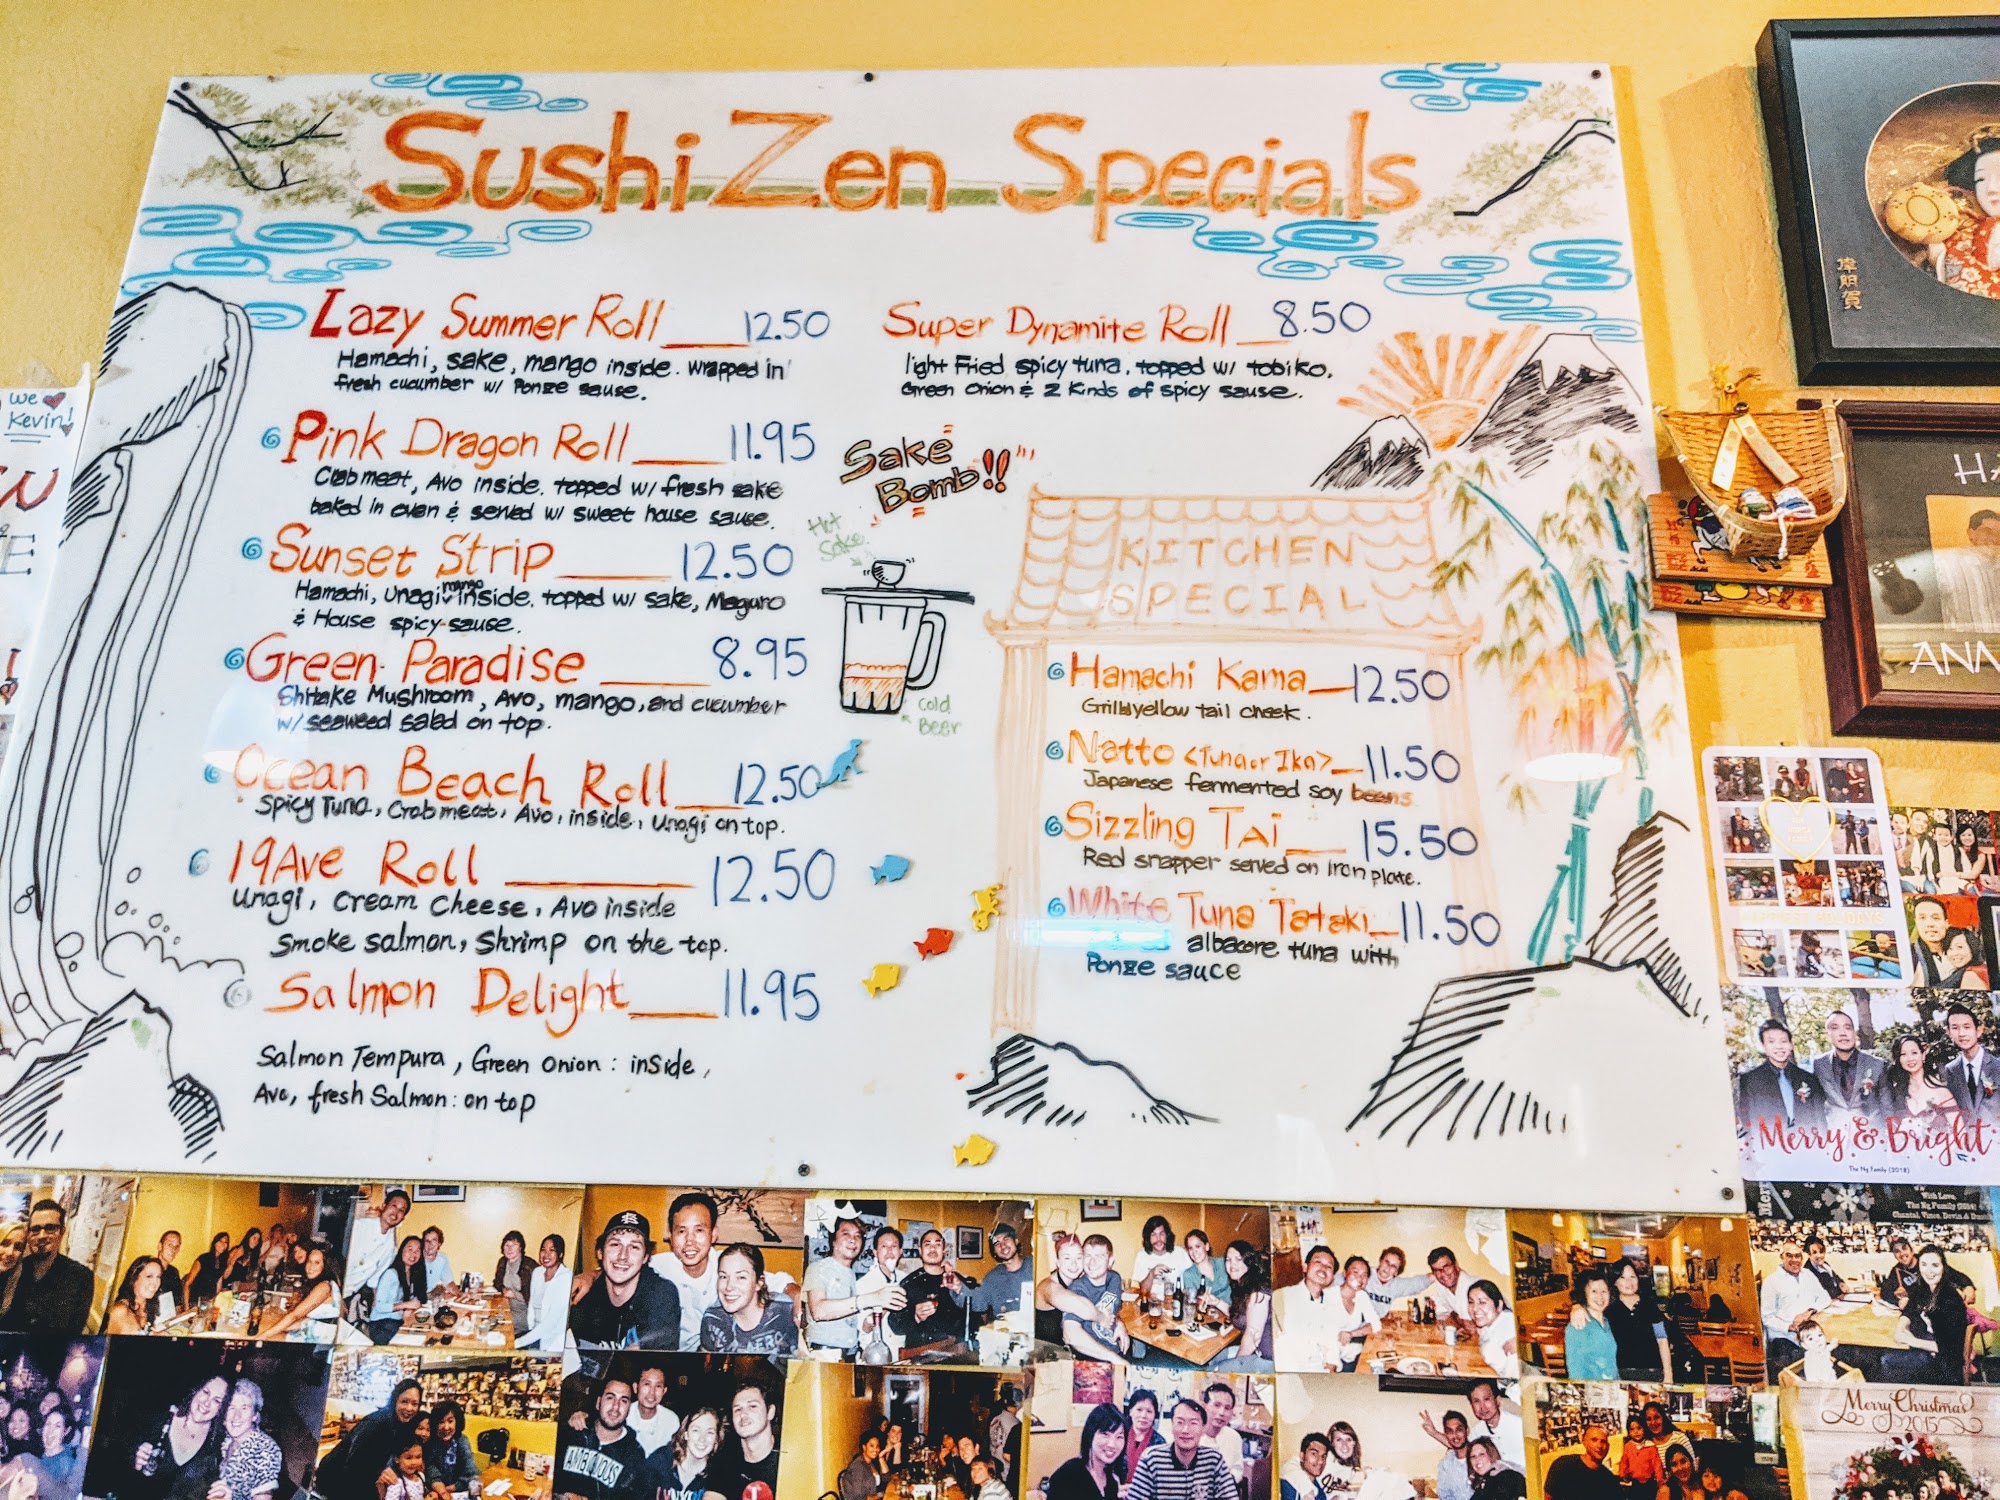 Sushi Zen Specials
Lazy Summer Roll 12.50
Hamachi, sake, mango inside. wrapped in
fresh cucumber w/ Ponze sause.
Pink Dragon Roll 11.95
Crabmeat, Avo inside. topped w/ fresh sake
baked in oven & served w/ sweet house sause.
Sunset Strip 12.50
mango
Hamachi, unagi inside. topped w/ sake, Maguro
& House spicy sause.
Green Paradise 8.95
Shitake Mushroom, Avo, mango, and cucumber
w/ seaweed salad on top.
Ocean Beach Roll 12.50
Spicy Tuna, Crabmeat, Avo, inside, unagi on top.
19Ave Roll 12.50
unagi, cream cheese, Avo inside
Smoke salmon, shrimp on the top.
Salmon Delight 11.95
Salmon Tempura, Green Onion: inside,
Avo, fresh Salmon: on top
Super Dynamite Roll 8.50
light Fried spicy tuna, topped w/ tobiko,
Green Onion & 2 Kinds of spicy sause.
Sake
Bomb!!
Hot
Sake
Cold
Beer
KITCHEN
SPECIAL
Hamachi Kama 12.50
Grilld yellow tail cheek.
Natto <Tuna or Ika> 11.50
Japanese fermented soy beans
Sizzling Tai 15.50
Red snapper served on iron plate.
White Tuna Tataki 11.50
albacore tuna with
Ponze sauce
we
Kevin!
HA
ANN
Merry & Bright
The Ng Family (2018)
With Love,
The Ng Family (2014)
Merry Christmas
2015